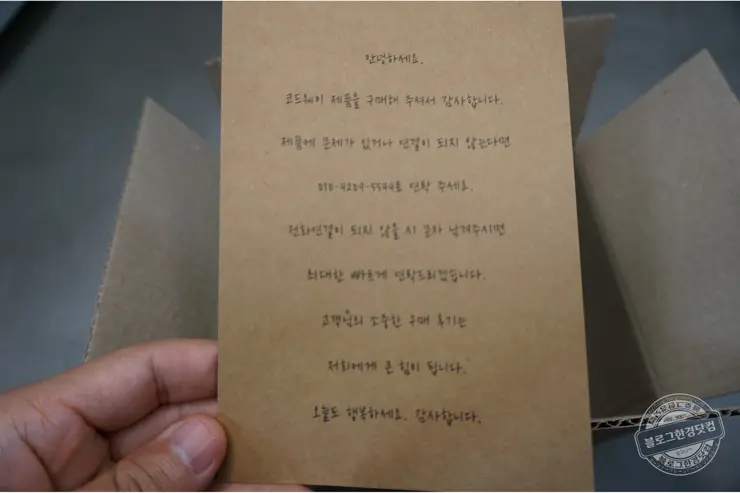 안녕하세요.
코드웨이 제품을 구매해 주셔서 감사합니다.
제품에 문제가 있거나 연결이 되지 않는다면
010-4209-5544로 연락 주세요.
전화연결이 되지 않을 시 문자 남겨주시면
최대한 빠르게 연락드리겠습니다.
고객님의 소중한 구매 후기는
저희에게 큰 힘이 됩니다.
오늘도 행복하세요. 감사합니다.
블로그한경닷컴
블로그한경닷컴